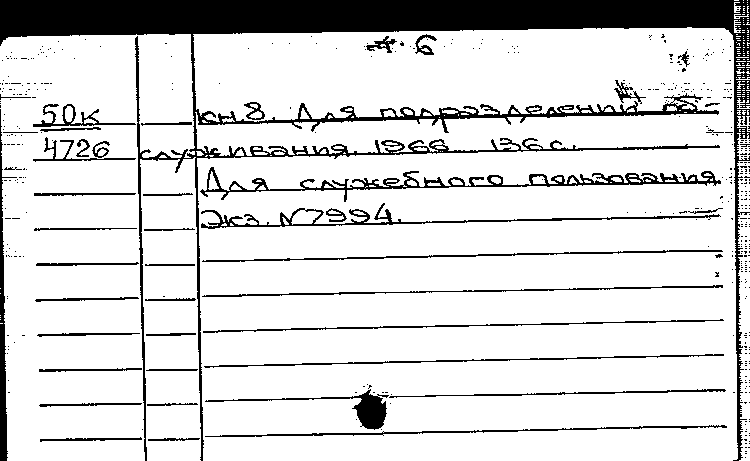 6
50к кн.8. Для подразделений об-
4726 служивания. 1966 136 с.
Для служебного пользования
Экз. №7994.